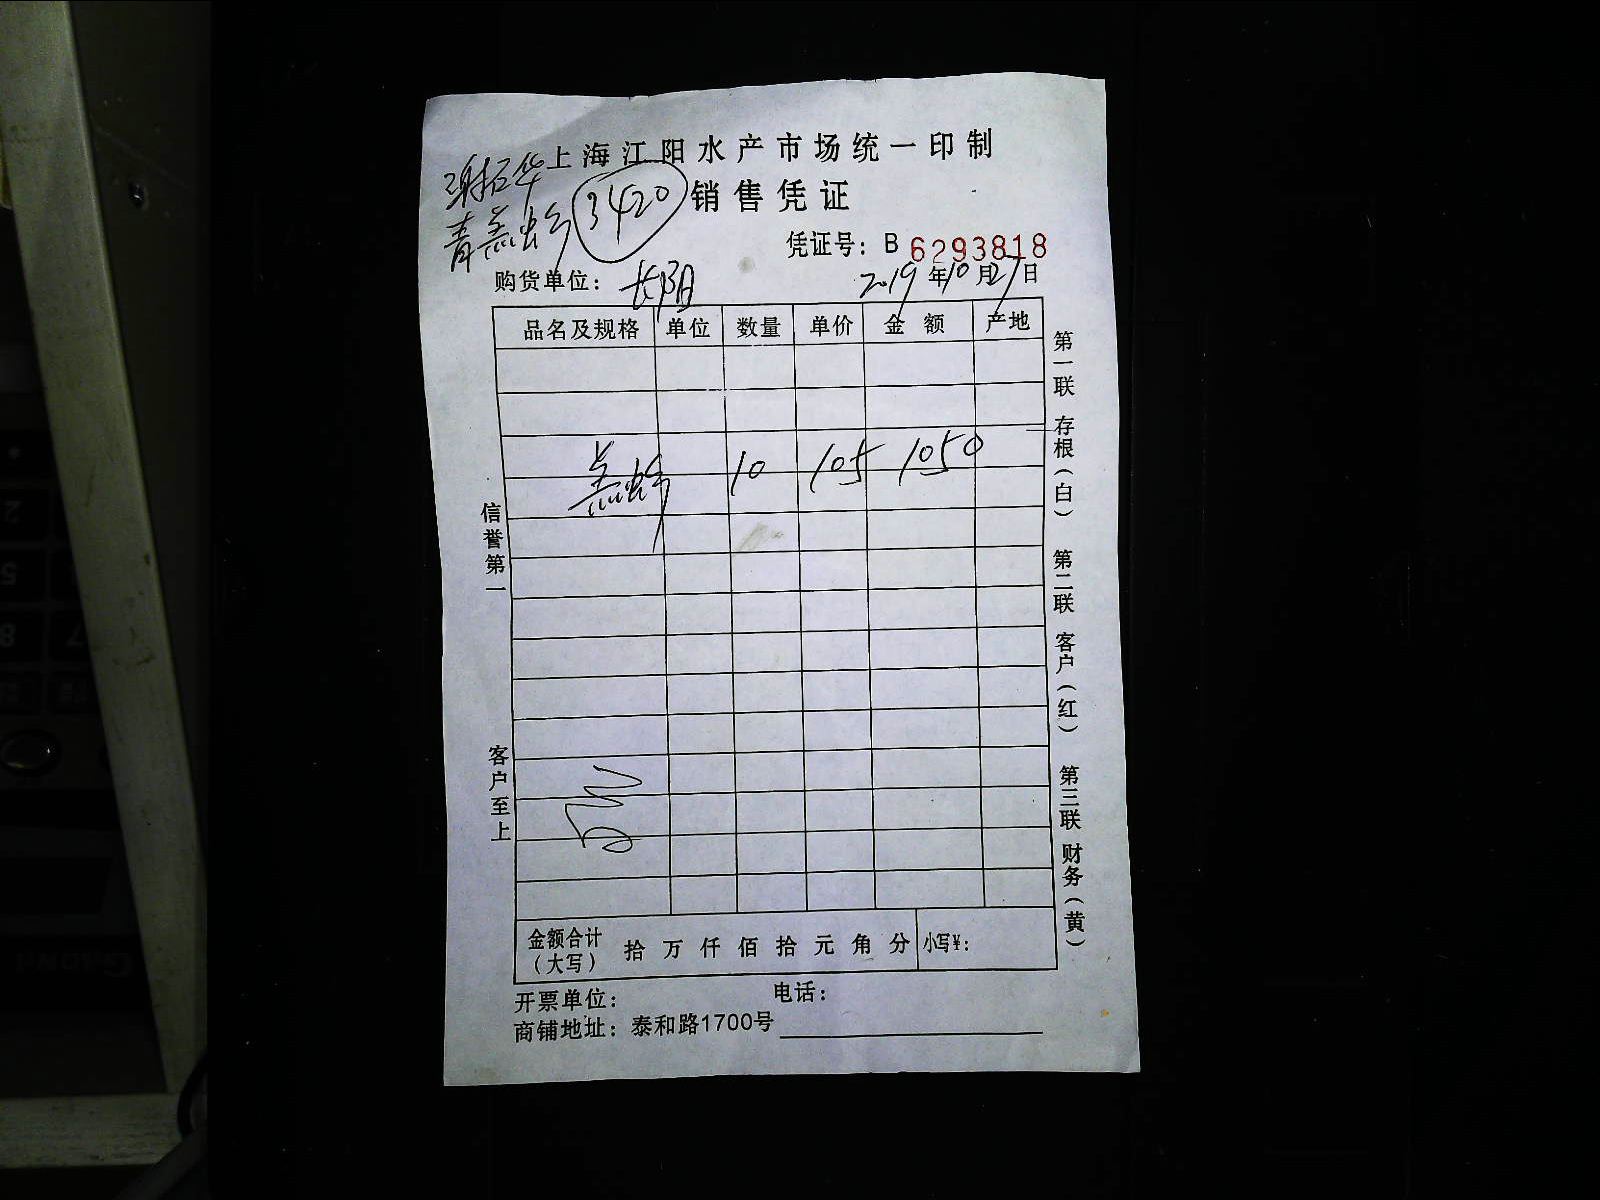 上海江阳水产市场统一印制
销售凭证
3420
凭证号：B 6293818
购货单位：长阳
2019年10月27日
品名及规格 单位 数量 单价 金额 产地
羔蚧 10 105 1050
信誉第一
客户至上
第一联 存根（白） 第二联 客户（红） 第三联 财务（黄）
金额合计（大写） 拾 万 仟 佰 拾 元 角 分 小写¥：
开票单位： 电话：
商铺地址：泰和路1700号